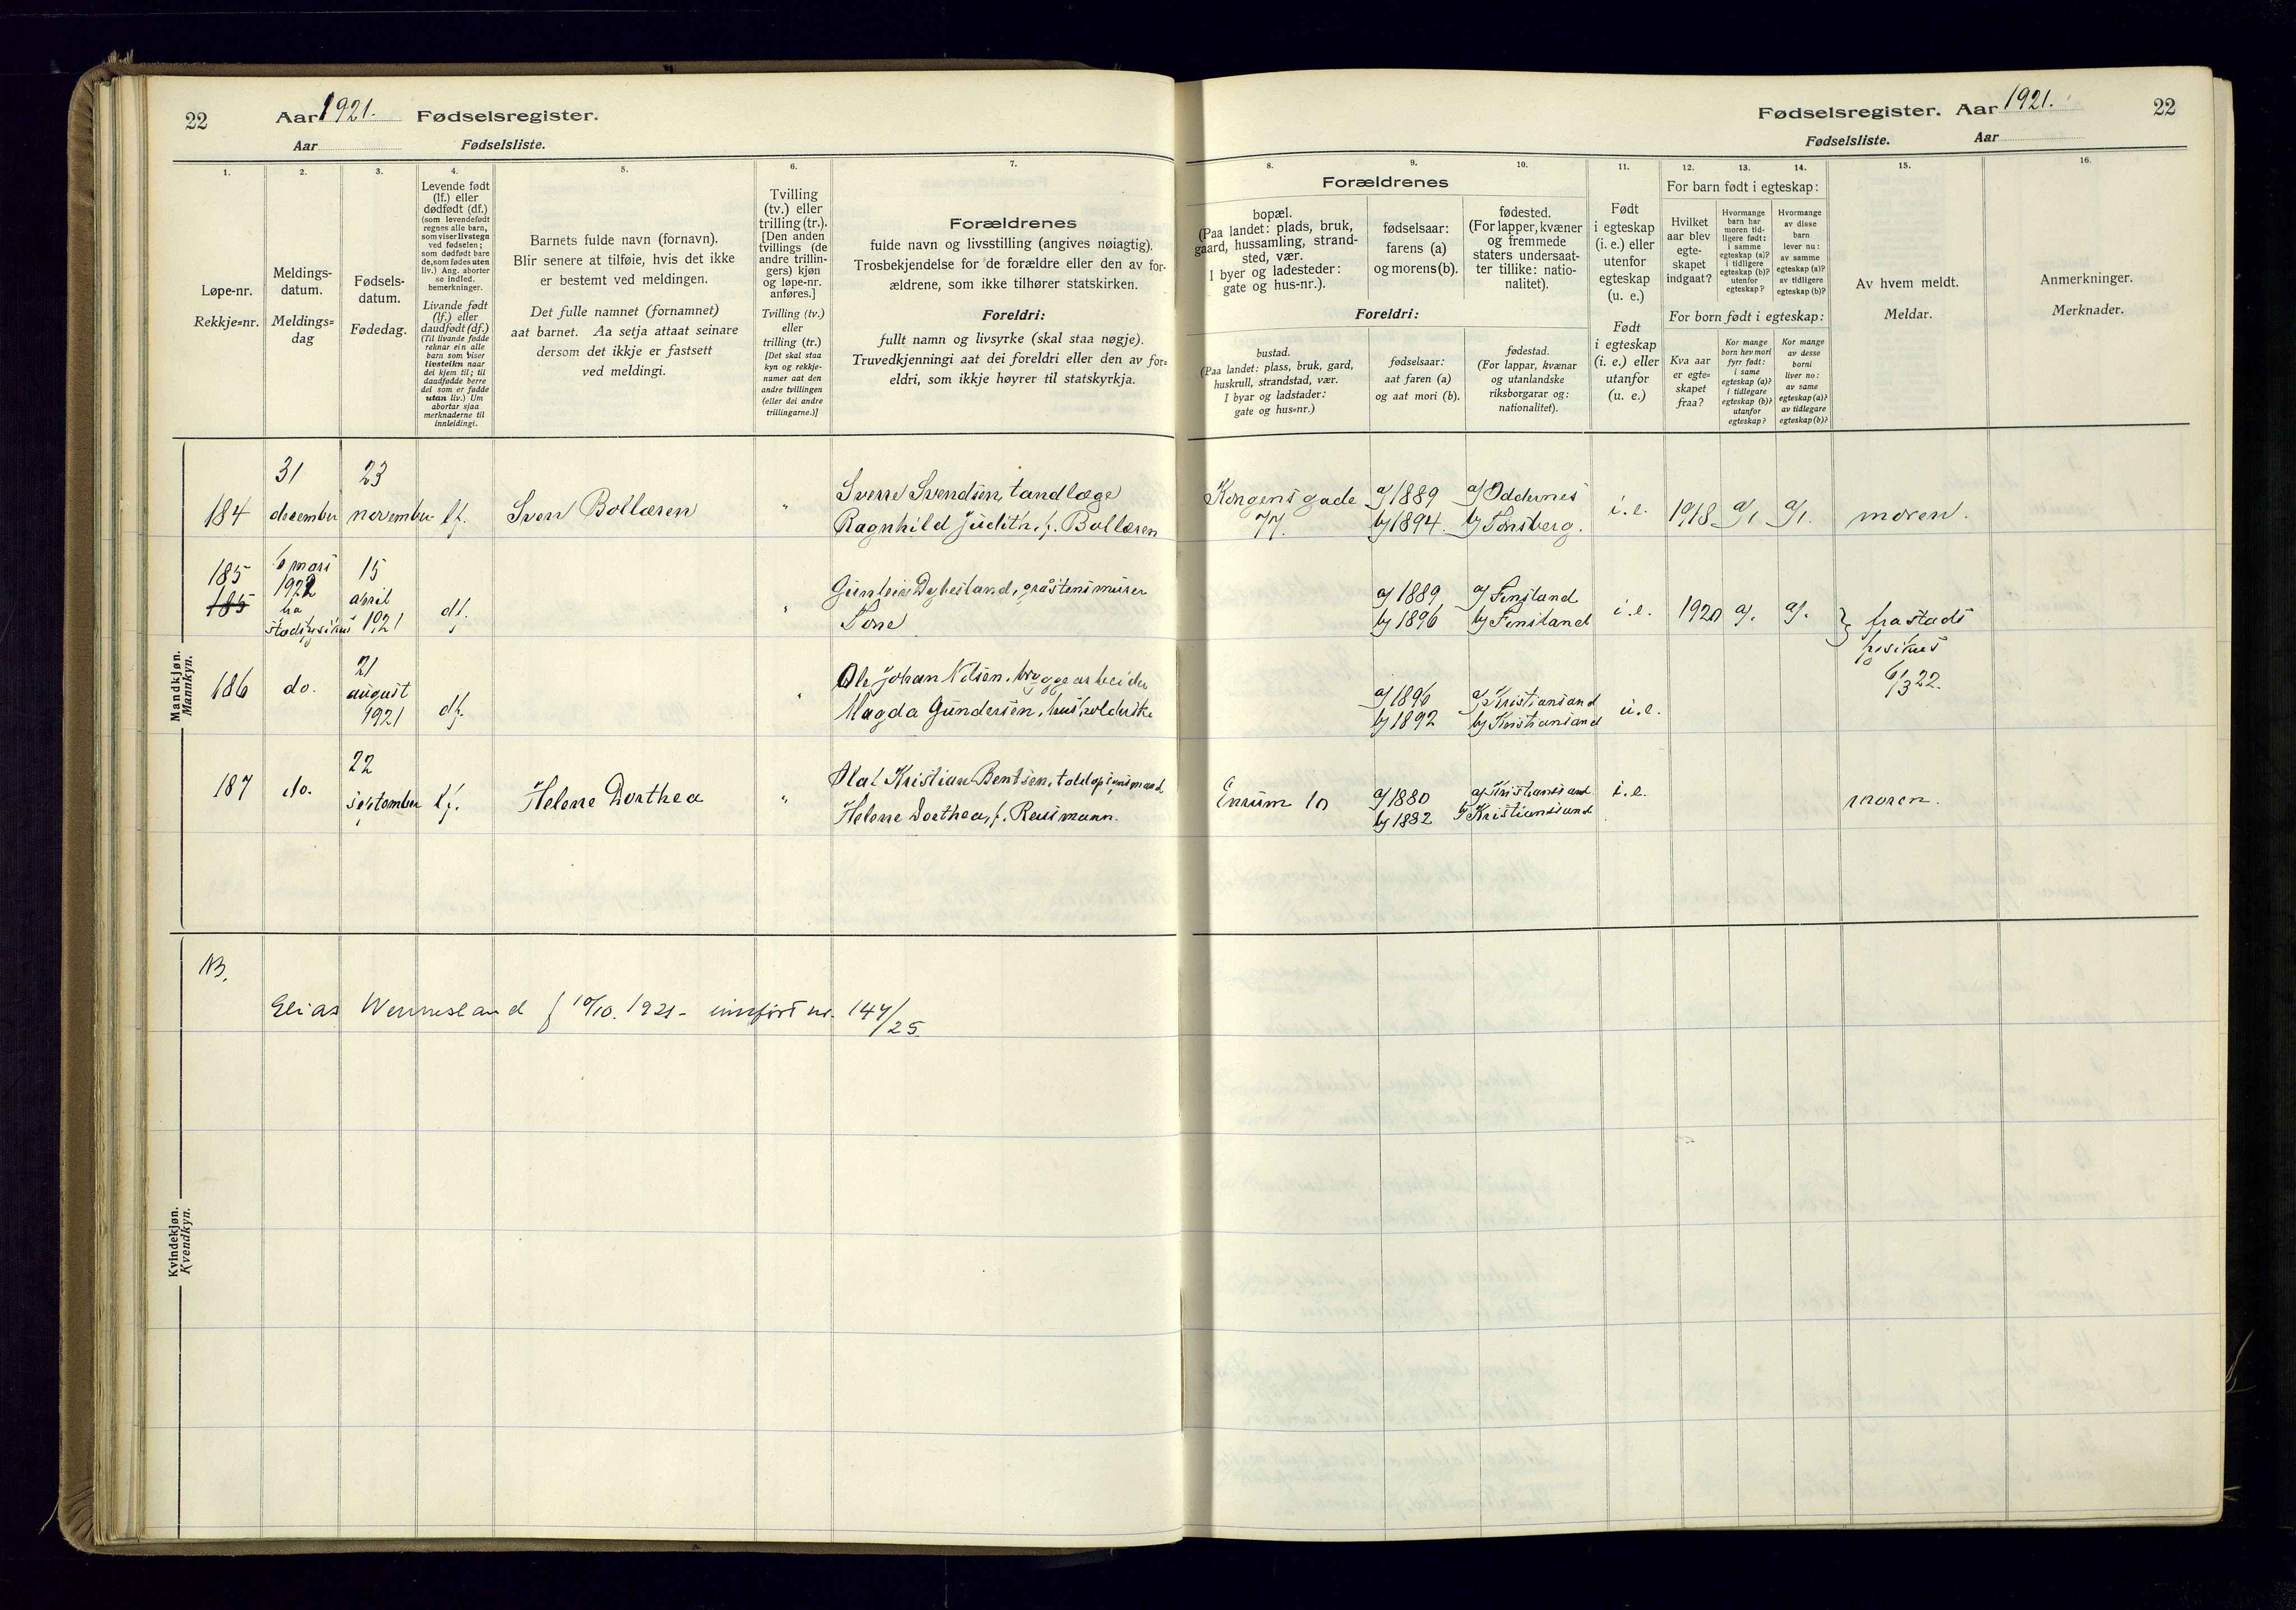 22 Aar 1921. Fødselsregister.
Aar Fødselsliste.
Fødselsregister. Aar 1921. 22
Fødselsliste. Aar
1.
Løpe-nr.
Rekkje=nr.
2.
Meldings-
datum.
Meldings=
dag
3.
Fødsels-
datum.
Fødedag.
4.
Levende født
(lf.) eller
dødfødt (df.)
(som levendefødt
regnes alle barn,
som viser livstegn
ved fødselen;
som dødfødt bare
de, som fødes uten
liv.) Ang. aborter
se indled.
bemerkninger.
Livande født
(lf.) eller
daudfødt (df.)
(Til livande fødde
reknar ein alle
barn som viser
livsteikn naar
dei kjem til; til
daudfødde berre
dei som er fødde
utan liv.) Um
abortar sjaa
merknaderne til
innleidingi.
5.
Barnets fulde navn (fornavn).
Blir senere at tilføie, hvis det ikke
er bestemt ved meldingen.
Det fulle namnet (fornamnet)
aat barnet. Aa setja attaat seinare
dersom det ikkje er fastsett
ved meldingi.
6.
Tvilling
(tv.) eller
trilling (tr.).
[Den anden
tvillings (de
andre trillin-
gers) kjøn
og løpe-nr.
anføres.]
Tvilling (tv.)
eller
trilling (tr.)
[Det skal staa
kyn og rekkje-
numer aat den
andre tvillingen
(eller dei andre
trillingarne.)]
7.
Forældrenes
fulde navn og livsstilling (angives nøiagtig).
Trosbekjendelse for de forældre eller den av for-
ældrene, som ikke tilhører statskirken.
Foreldri:
fullt namn og livsyrke (skal staa nøgje).
Truvedkjenningi aat dei foreldri eller den av for=
eldri, som ikkje høyrer til statskyrkja.
8. 9. 10.
Forældrenes
bopæl.
(Paa landet: plads, bruk,
gaard, hussamling, strand-
sted, vær.
I byer og ladesteder:
gate og hus-nr.).
fødselsaar:
farens (a)
og morens (b).
fødested.
(For lapper, kvæner
og fremmede
staters undersaat-
ter tillike: natio-
nalitet).
Foreldri:
bustad.
(Paa landet: plass, bruk, gard,
huskrull, strandstad, vær.
I byar og ladstader:
gate og hus=nr.)
fødselsaar:
aat faren (a)
og aat mori (b).
fødestad.
(For lappar, kvænar
og utanlandske
riksborgarar og:
nationalitet).
11.
Født
i egteskap
(i. e.) eller
utenfor
egteskap
(u. e.)
Født
i egteskap
(i. e.) eller
utanfor
(u. e.)
12. 13. 14.
For barn født i egteskap:
Hvilket
aar blev
egte-
skapet
indgaat?
Hvormange
barn har
moren tid-
ligere født:
i samme
egteskap (a)?
i tidligere
egteskap (b)?
utenfor
egteskap?
Hvormange
av disse
barn
lever nu:
av samme
egteskap (a)?
av tidligere
egteskap (b)?
For born født i egteskap:
Kva aar
er egte=
skapet
fraa?
Kor mange
born hev mori
fyrr født:
i same
egteskap (a)?
i tidlegare
egteskap (b)?
utanfor
egteskap?
Kor mange
av desse
borni
liver no:
av same
egteskap (a)?
av tidlegare
egteskap (b)?
15.
Av hvem meldt.
Meldar.
16.
Anmerkninger.
Merknader.
Mandkjøn.
Mannkyn.
184 31 december 23 november lf. Sven Bollæren " Sverre Svendsen, tandlæge
Ragnhild Judith, f. Bollæren
Kongensgade 77. a/ 1889 b/ 1894. a/ Oddernes b/ Tønsberg. i. e. 1918 a/1 a/1. moren.
185
185
6 mars
1922
fra
stadsfysikus
15
april
1921
df. "
Gunleiv Dybesland, gråstensmurer
Tone
a/ 1889 a/ Finsland
b/ 1896 b/ Finsland
i. e. 1920 a/. a/. } fra stads
fysikus
6/3 22.
186 do. 21
august
1921
df. "
Ole Johan Nilsen, bryggearbeider
Magda Gundersen, husholderske
a/ 1896 a/ Kristiansand
b/ 1892 b/ Kristiansand
u. e.
187 do. 22
september lf. Helene Dorthea "
Olaf Kristian Bentsen, toldopsynsmand
Helene Dorthea, f. Reusmann.
Enrum 10 a/ 1880 a/ Kristianssand
b/ 1882 b/ Kristianssand
i. e. moren.
Kvindekjøn.
Kvendkyn.
NB.
Elias Wennesland f 10/10. 1921 - innført nr. 147/25.